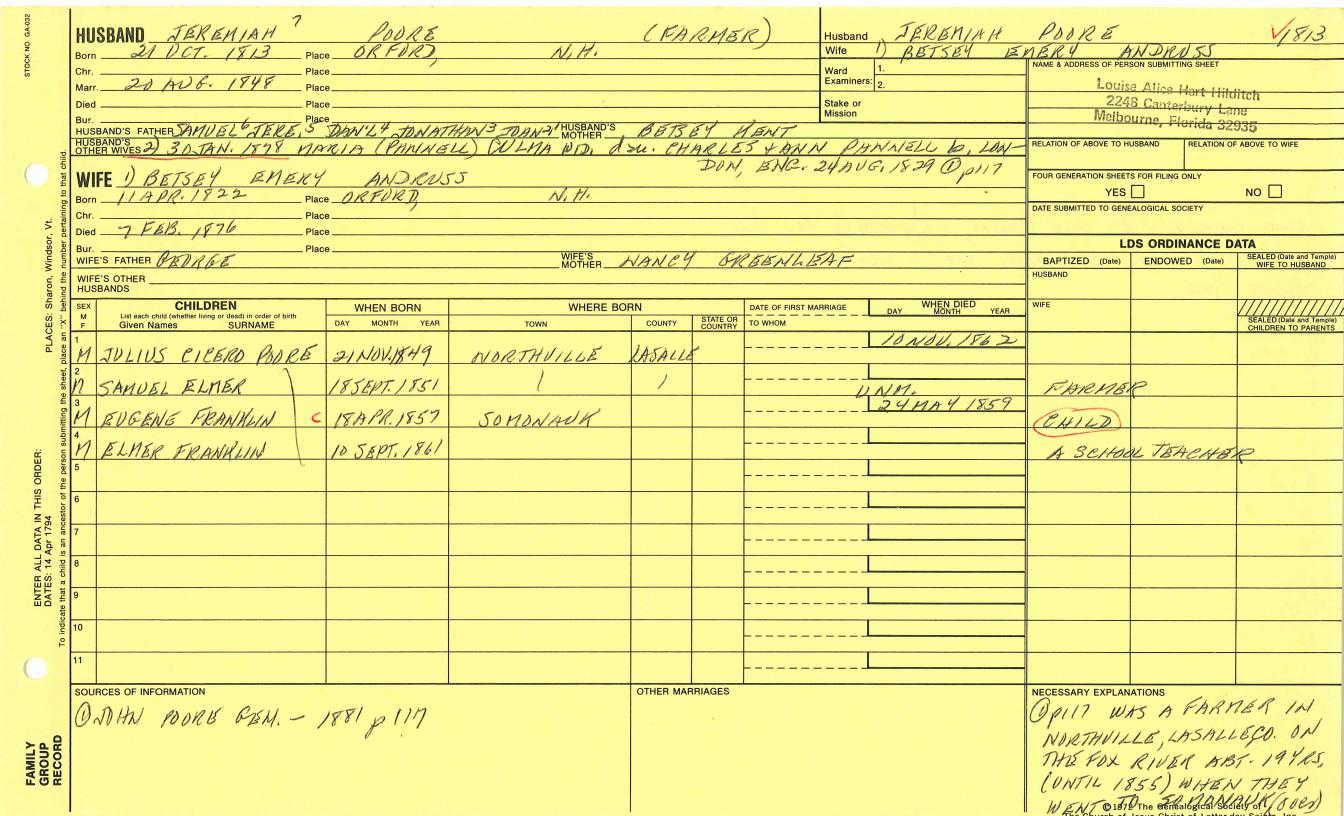 STOCK NO. GA-032
HUSBAND JEREMIAH 7 POORE (FARMER)
Born 21 OCT. 1813 Place ORFORD, N.H.
Chr. Place
Marr. 20 AUG. 1848 Place
Died Place
Bur. Place
HUSBAND'S FATHER SAMUEL 6 JERE, 5 DAN'L 4 JONATHAN 3 JOHN 2 1 HUSBAND'S MOTHER BETSEY KENT
HUSBAND'S OTHER WIVES 2) 30 JAN. 1878 MARIA (PANNELL) CULMA WID. dau. CHARLES & ANN PANNELL b. LON-
DON, ENG. 24 AUG. 1829 ① p117
Husband JEREMIAH POORE ✓1813
Wife 1) BETSEY EMERY ANDRUSS
Ward Examiners: 1.
2.
Stake or Mission
NAME & ADDRESS OF PERSON SUBMITTING SHEET
Louise Alice Hart Hilditch
2246 Canterbury Lane
Melbourne, Florida 32935
RELATION OF ABOVE TO HUSBAND RELATION OF ABOVE TO WIFE
FOUR GENERATION SHEETS FOR FILING ONLY
YES NO
DATE SUBMITTED TO GENEALOGICAL SOCIETY
WIFE 1) BETSEY EMERY ANDRUSS
Born 11 APR. 1822 Place ORFORD, N.H.
Chr. Place
Died 7 FEB. 1876 Place
Bur. Place
WIFE'S FATHER GEORGE WIFE'S MOTHER NANCY GREENLEAF
WIFE'S OTHER HUSBANDS
LDS ORDINANCE DATA
BAPTIZED (Date) ENDOWED (Date) SEALED (Date and Temple) WIFE TO HUSBAND
HUSBAND
WIFE
SEALED (Date and Temple) CHILDREN TO PARENTS
SEX M F CHILDREN List each child (whether living or dead) in order of birth Given Names SURNAME WHEN BORN DAY MONTH YEAR WHERE BORN TOWN COUNTY STATE OR COUNTRY DATE OF FIRST MARRIAGE TO WHOM WHEN DIED DAY MONTH YEAR
1 M JULIUS CICERO POORE 21 NOV. 1849 NORTHVILLE LASALLE 10 NOV. 1862
2 M SAMUEL ELMER 18 SEPT. 1851 UNM. FARMER
3 M EUGENE FRANKLIN C 18 APR. 1857 SOMONAUK 24 MAY 1859 CHILD
4 M ELMER FRANKLIN 10 SEPT. 1861 A SCHOOL TEACHER
5
6
7
8
9
10
11
SOURCES OF INFORMATION
① JOHN POORE GEN. - 1881 p 117
OTHER MARRIAGES
NECESSARY EXPLANATIONS
① p117 WAS A FARMER IN
NORTHVILLE, LASALLE CO. ON
THE FOX RIVER ABT. 19 YRS,
(UNTIL 1855) WHEN THEY
WENT TO SOMONAUK (over)
The Genealogical Society of
The Church of Jesus Christ of Latter-day Saints, Inc.
PLACES: Sharon, Windsor, Vt.
ENTER ALL DATA IN THIS ORDER:
DATES: 14 Apr 1794
To indicate that a child is an ancestor of the person submitting the sheet, place an "X" behind the number pertaining to that child.
FAMILY
GROUP
RECORD